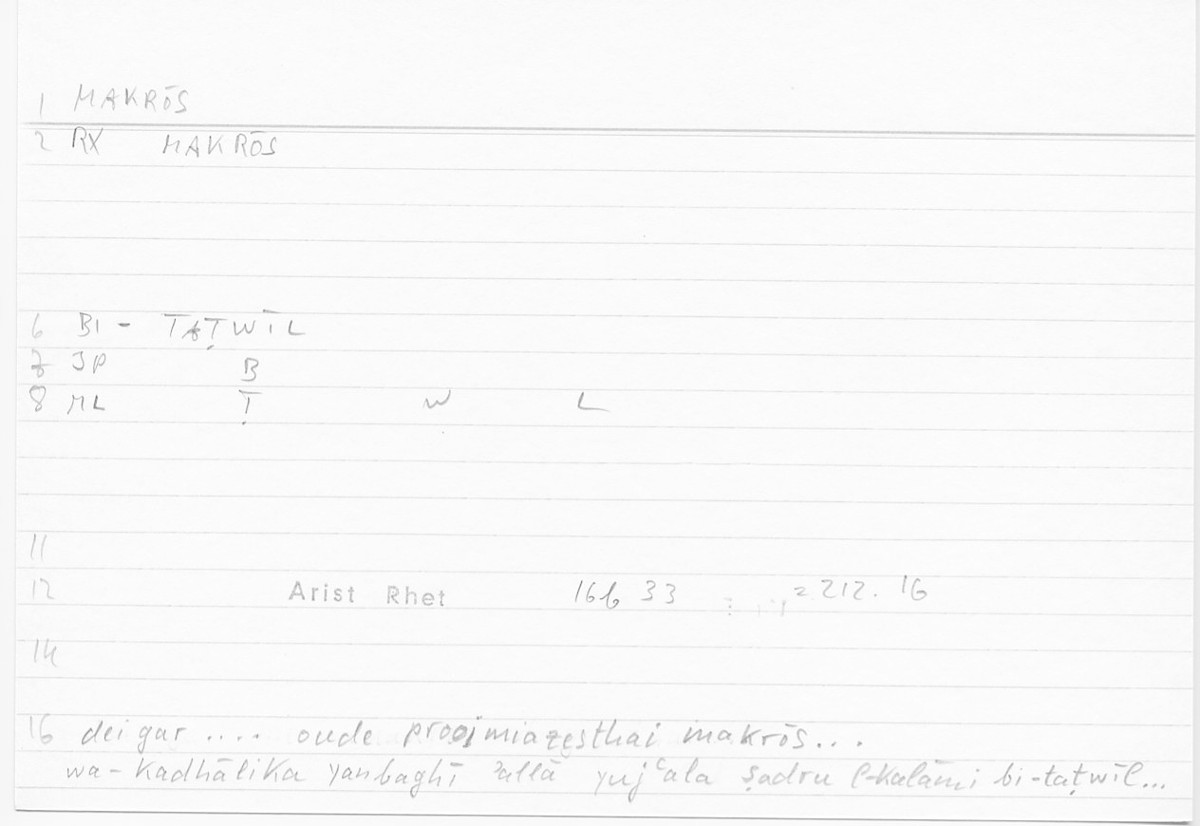 1 MAKRŌS
2 RX MAKRŌS
6 BI - TAṬWĪL
7 JP B
8 ML Ṭ W L
11
12 Arist Rhet 16b 33 = 212. 16
14
16 dei gar .... oude prooimiazesthai makrōs...
wa-kadhālika yanbaghī ʾallā yujʿala ṣadru l-kalāmi bi-taṭwīl...